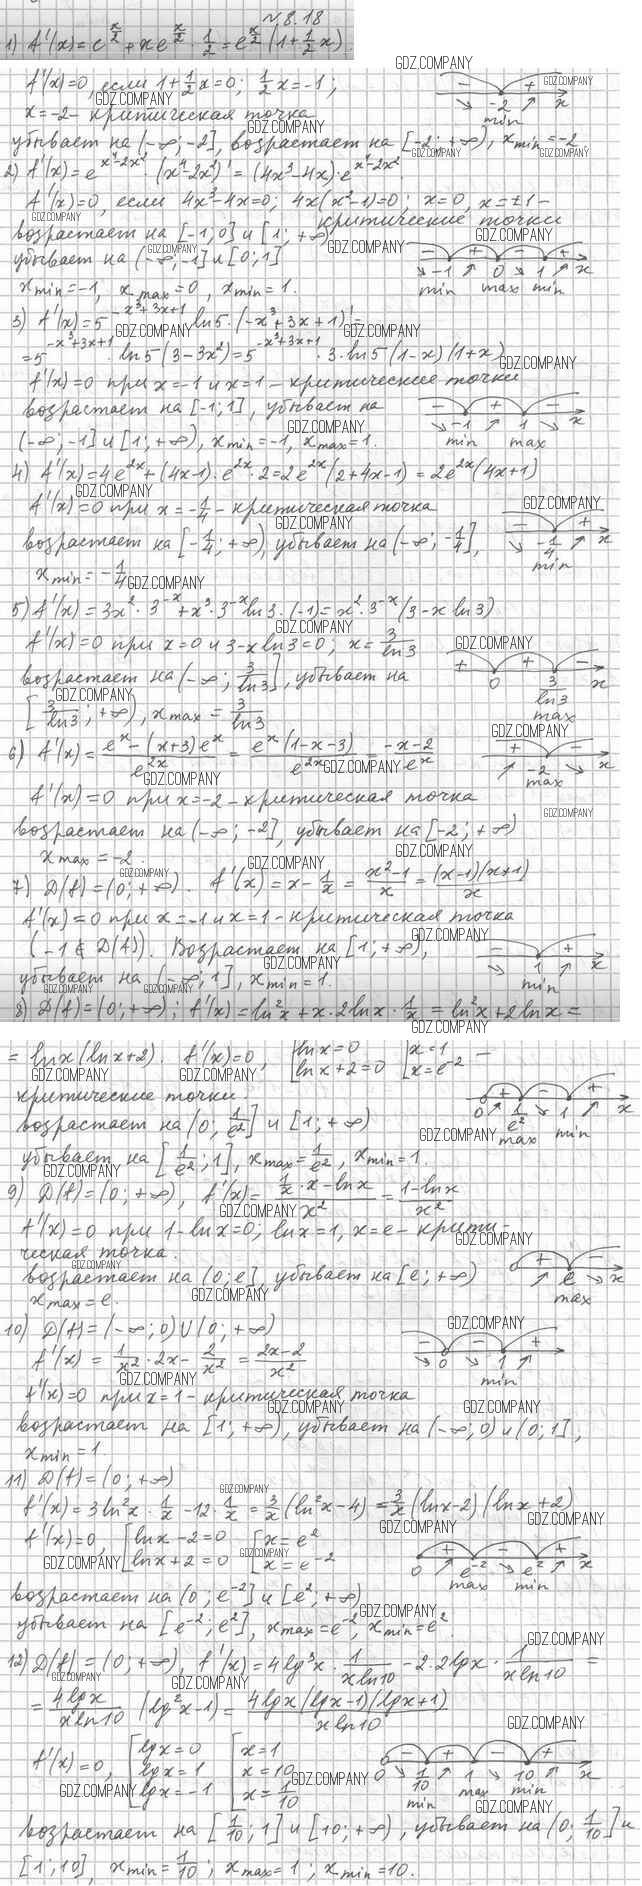 №8.18
1) f'(x) = e^{x/2} + x e^{x/2} · 1/2 = e^{x/2} (1 + 1/2 x).
f'(x)=0, если 1 + 1/2 x = 0; 1/2 x = -1;
x = -2 - критическая точка
убывает на (-∞; -2], возрастает на [-2; +∞), x min = -2.
- + -2 min x
2) f'(x) = e^{x⁴-2x²} · (x⁴-2x²)' = (4x³-4x)·e^{x⁴-2x²}.
f'(x)=0, если 4x³-4x=0; 4x(x²-1)=0; x=0, x=±1 -
критические точки
возрастает на [-1; 0] и [1; +∞)
убывает на (-∞; -1] и [0; 1]
x min = -1, x max = 0, x min = 1.
- + - + -1 0 1 x min max min
3) f'(x) = 5^{-x³+3x+1} ln5 · (-x³+3x+1)' =
= 5^{-x³+3x+1} · ln5 (3-3x²) = 5^{-x³+3x+1} · 3·ln5 (1-x)(1+x)
f'(x)=0 при x=-1 и x=1 - критические точки
возрастает на [-1; 1], убывает на
(-∞; -1] и [1; +∞), x min = -1, x max = 1.
- + - -1 1 x min max
4) f'(x) = 4e^{2x} + (4x-1)·e^{2x}·2 = 2e^{2x}(2+4x-1) = 2e^{2x}(4x+1)
f'(x)=0 при x = -1/4 - критическая точка
возрастает на [-1/4; +∞), убывает на (-∞; -1/4],
x min = -1/4
- + -1/4 x min
5) f'(x) = 3x² · 3^{-x} + x³ · 3^{-x} ln3 · (-1) = x² · 3^{-x} (3 - x ln3)
f'(x)=0 при x=0 и 3 - x ln3 = 0; x = 3/ln3
возрастает на (-∞; 3/ln3], убывает на
[3/ln3; +∞), x max = 3/ln3
+ + - 0 3/ln3 x max
6) f'(x) = (e^x - (x+3)e^x)/e^{2x} = e^x(1-x-3)/e^{2x} = (-x-2)/e^x
f'(x)=0 при x=-2 - критическая точка
возрастает на (-∞; -2], убывает на [-2; +∞)
x max = -2.
+ - -2 x max
7) D(f) = (0; +∞). f'(x) = x - 1/x = (x²-1)/x = (x-1)(x+1)/x
f'(x)=0 при x=-1 и x=1 - критическая точка
(-1 ∉ D(f)). Возрастает на [1; +∞),
убывает на (-∞; 1], x min = 1.
- + 1 x min
8) D(f) = (0; +∞); f'(x) = ln²x + x·2lnx · 1/x = ln²x + 2lnx =
= lnx(lnx+2). f'(x)=0, [lnx=0 lnx+2=0 [x=1 x=e^{-2} -
критические точки.
возрастает на (0; 1/e²] и [1; +∞)
убывает на [1/e²; 1], x max = 1/e², x min = 1.
+ - + 0 1/e² 1 x max min
9) D(f) = (0; +∞), f'(x) = (1/x · x - lnx)/x² = (1-lnx)/x²
f'(x)=0 при 1-lnx=0; lnx=1, x=e - крити-
ческая точка.
возрастает на (0; e], убывает на [e; +∞)
x max = e.
+ - e x max
10) D(f) = (-∞; 0) U (0; +∞)
f'(x) = 1/x² · 2x - 2/x² = (2x-2)/x²
f'(x)=0 при x=1 - критическая точка
возрастает на [1; +∞), убывает на (-∞; 0) и (0; 1],
x min = 1
- - + 0 1 x min
11) D(f) = (0; +∞)
f'(x) = 3ln²x · 1/x - 12 · 1/x = 3/x (ln²x-4) = 3/x (lnx-2)(lnx+2)
f'(x)=0, [lnx-2=0 lnx+2=0 [x=e² x=e^{-2}
возрастает на (0; e^{-2}] и [e²; +∞)
убывает на [e^{-2}; e²], x max = e^{-2}, x min = e²
+ - + 0 e^{-2} e² x max min
12) D(f) = (0; +∞), f'(x) = 4lg³x · 1/(x ln10) - 2·2lgx · 1/(x ln10) =
= 4lgx/(x ln10) (lg²x-1) = 4lgx(lgx-1)(lgx+1)/(x ln10)
f'(x)=0, [lgx=0 lgx=1 lgx=-1 [x=1 x=10 x=1/10
- + - + 0 1/10 1 10 x min max min
возрастает на [1/10; 1] и [10; +∞), убывает на (0; 1/10] и
[1; 10], x min = 1/10; x max = 1; x min = 10.
GDZ.COMPANY